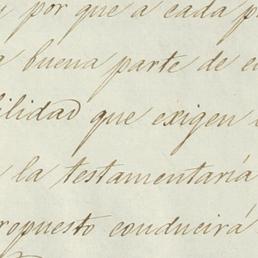 y por que a cada p
buena parte de e
ilidad que exigen
la testamentaría
ropuesto conducirá